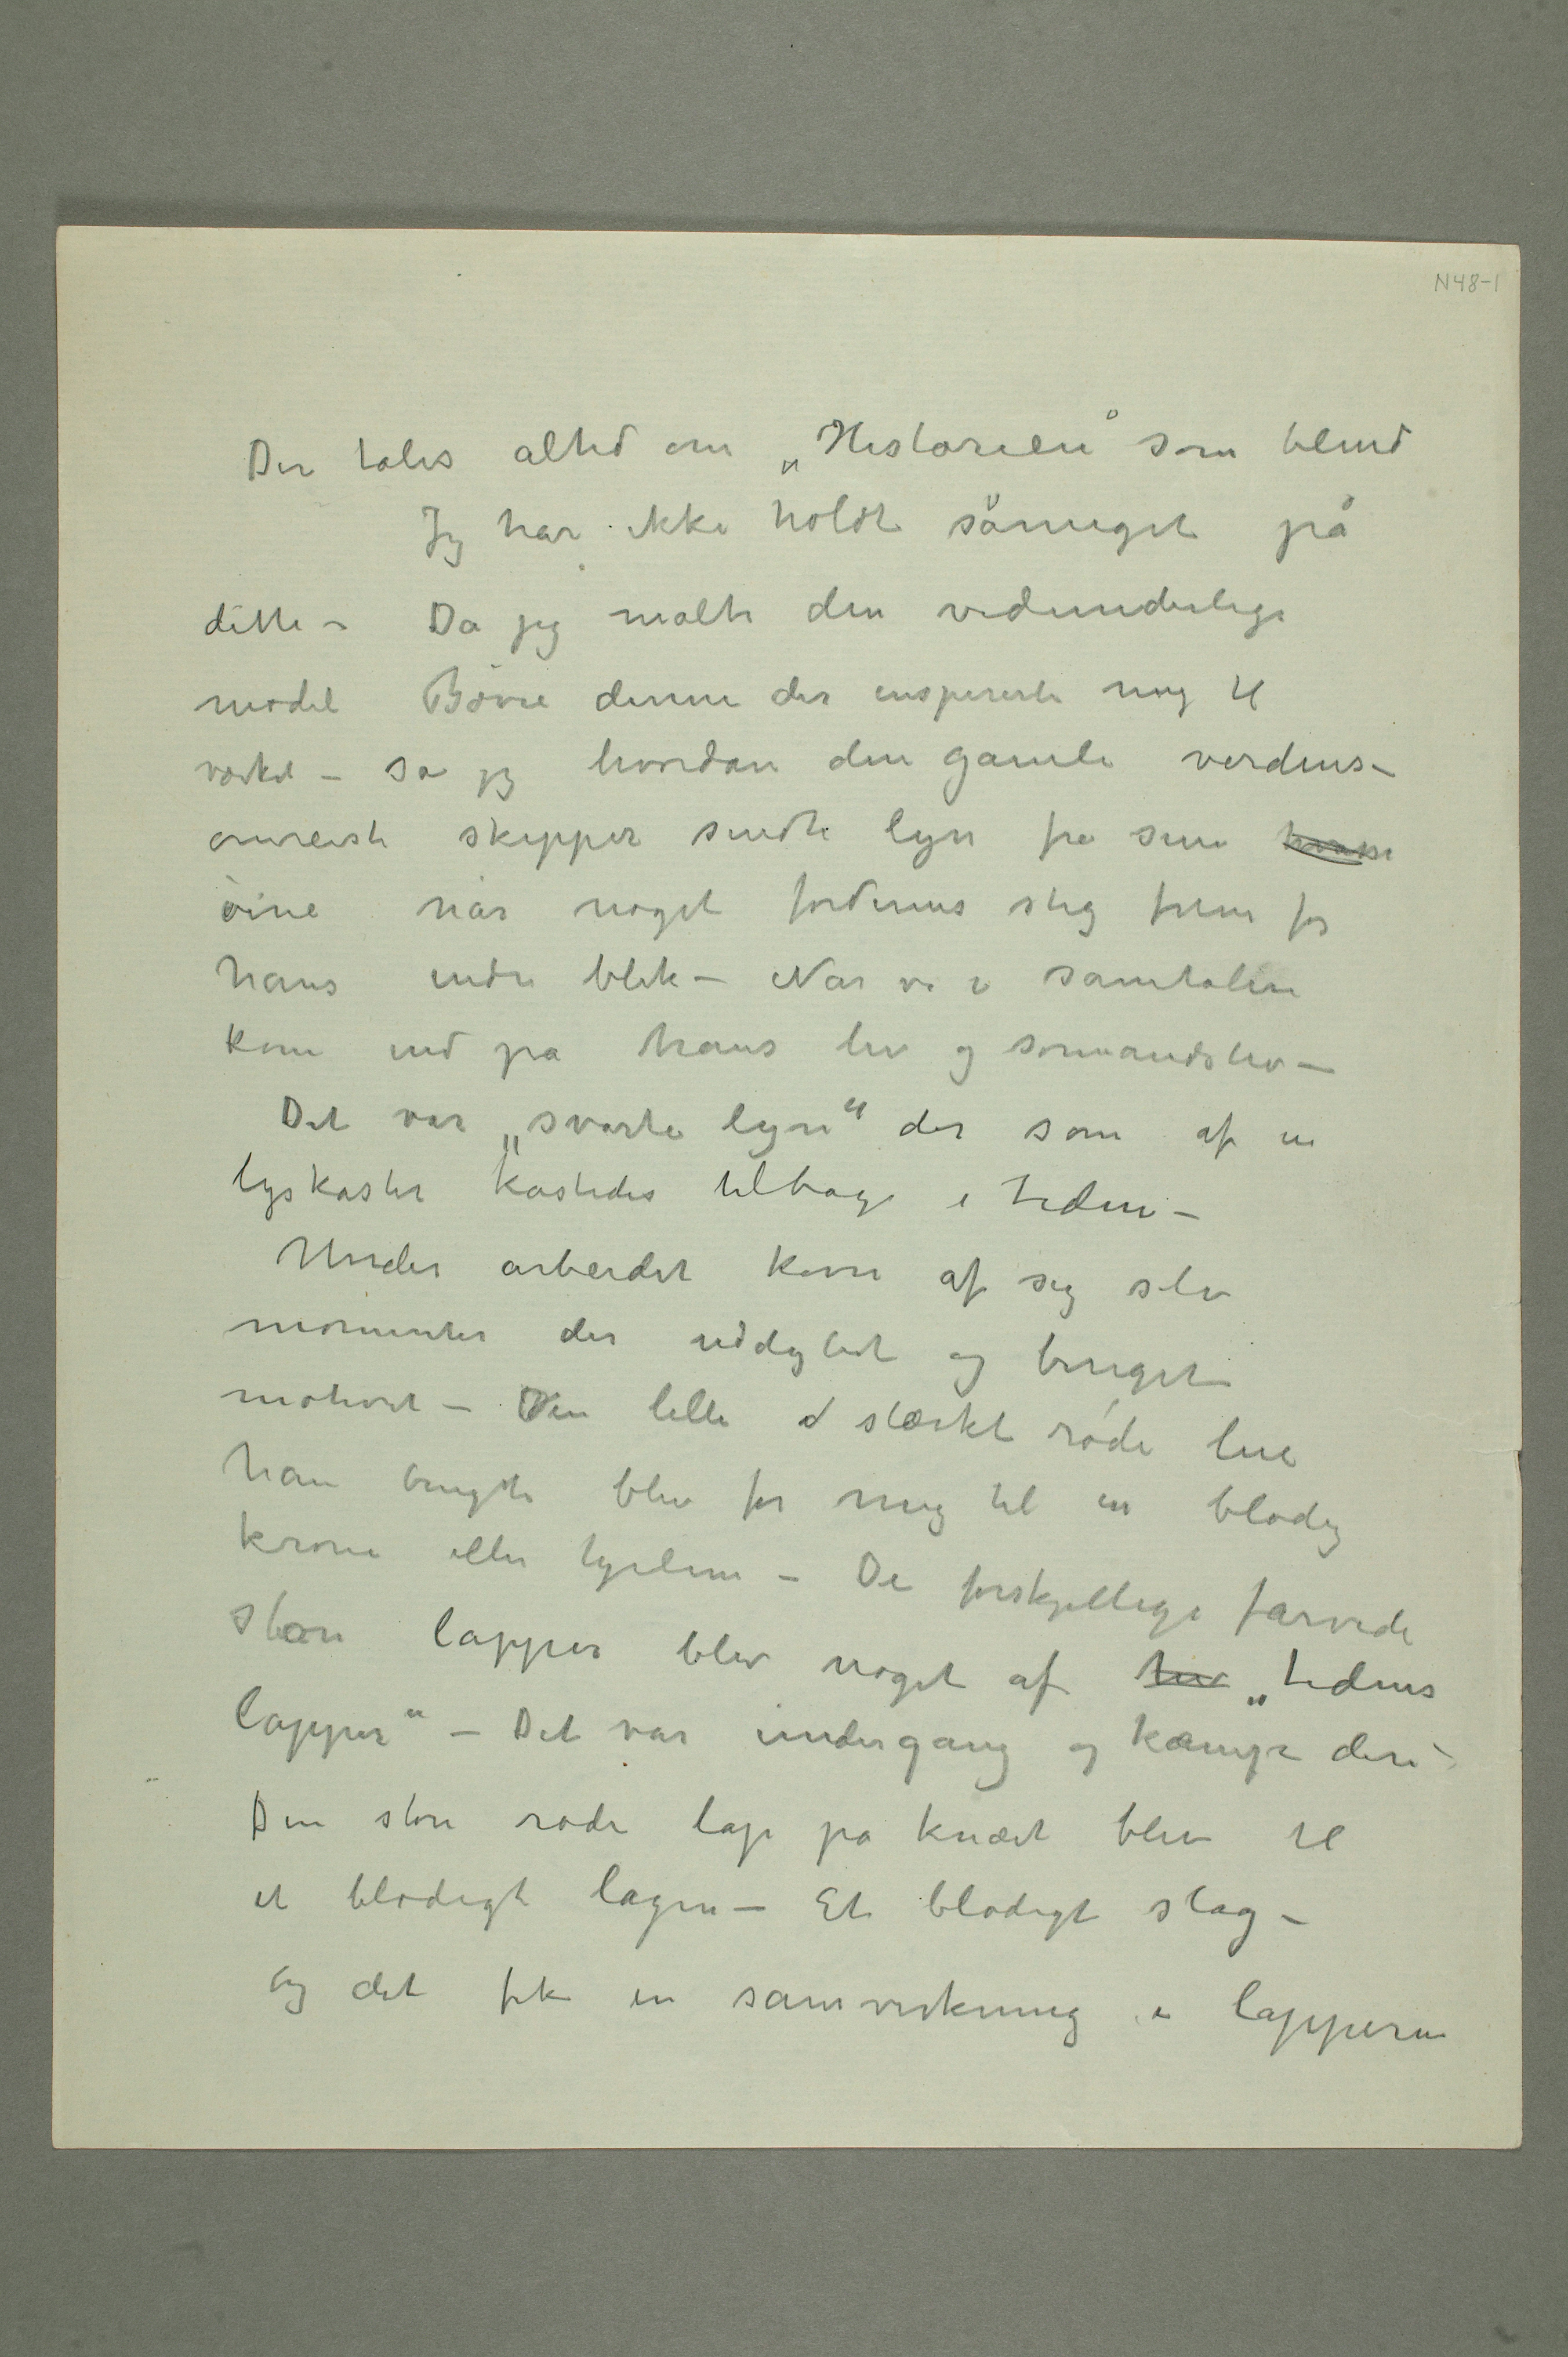 N48-1
Der tales altid om „Historien“ som blind
Jeg har ikke holdt såmeget på
dette – Da jeg malte den vidunderlige
model Börre denne der inspirerte mig til
værket – så jeg hvordan den gamle verdens-
omreiste skipper sendte lyn fra sine hvasse
öine når noget fordums steg frem for
hans indre blik – Når vi i samtalen
kom ind på hans liv og sømandsliv –
Det var „svarte lyn“ der som af en
lyskaster kastedes tilbage i tiden –
Under arbeidet kom af sig selv
momenter der uddybet og beriget
motivet – Den lille stærkt røde lue
han brugte blev for mig til en blodig
krone eller hjelm – De forskjellige farvede
store lapper blev noget af „tidens
lapper“ – Det var undergang og kamp deri –
Den store røde lap på knæet blev til
et blodigt lagen – Et blodigt slag –
Og det fik en samvirkning i lapperne